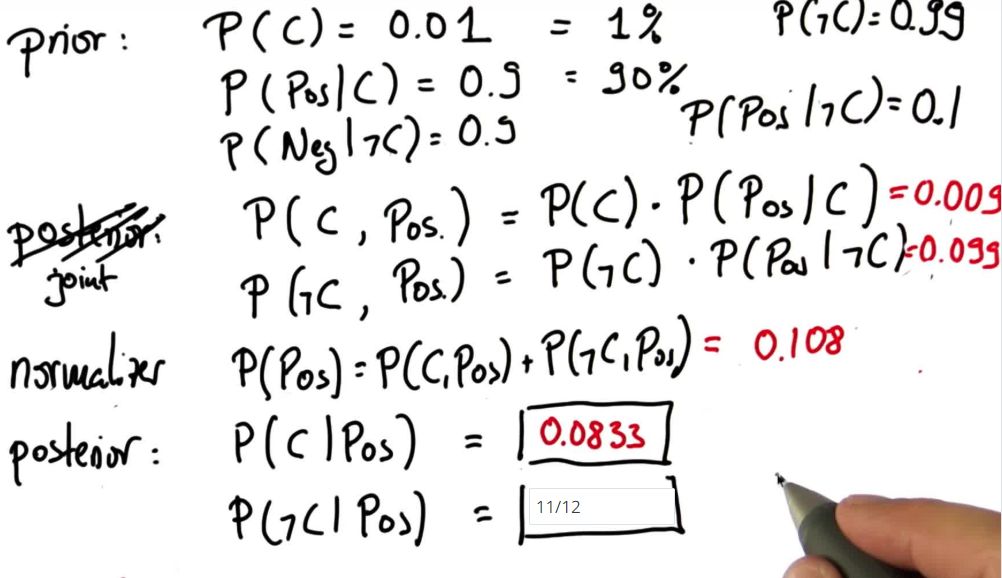 prior: P(C) = 0.01 = 1% P(¬C) = 0.99
P(Pos|C) = 0.9 = 90%
P(Pos|¬C) = 0.1
P(Neg|¬C) = 0.9
posterior:
joint
P(C, Pos.) = P(C) · P(Pos|C) = 0.009
P(¬C, Pos.) = P(¬C) · P(Pos|¬C) = 0.099
normalizer P(Pos) = P(C,Pos) + P(¬C,Pos) = 0.108
posterior: P(C|Pos) = 0.0833
P(¬C|Pos) = 11/12